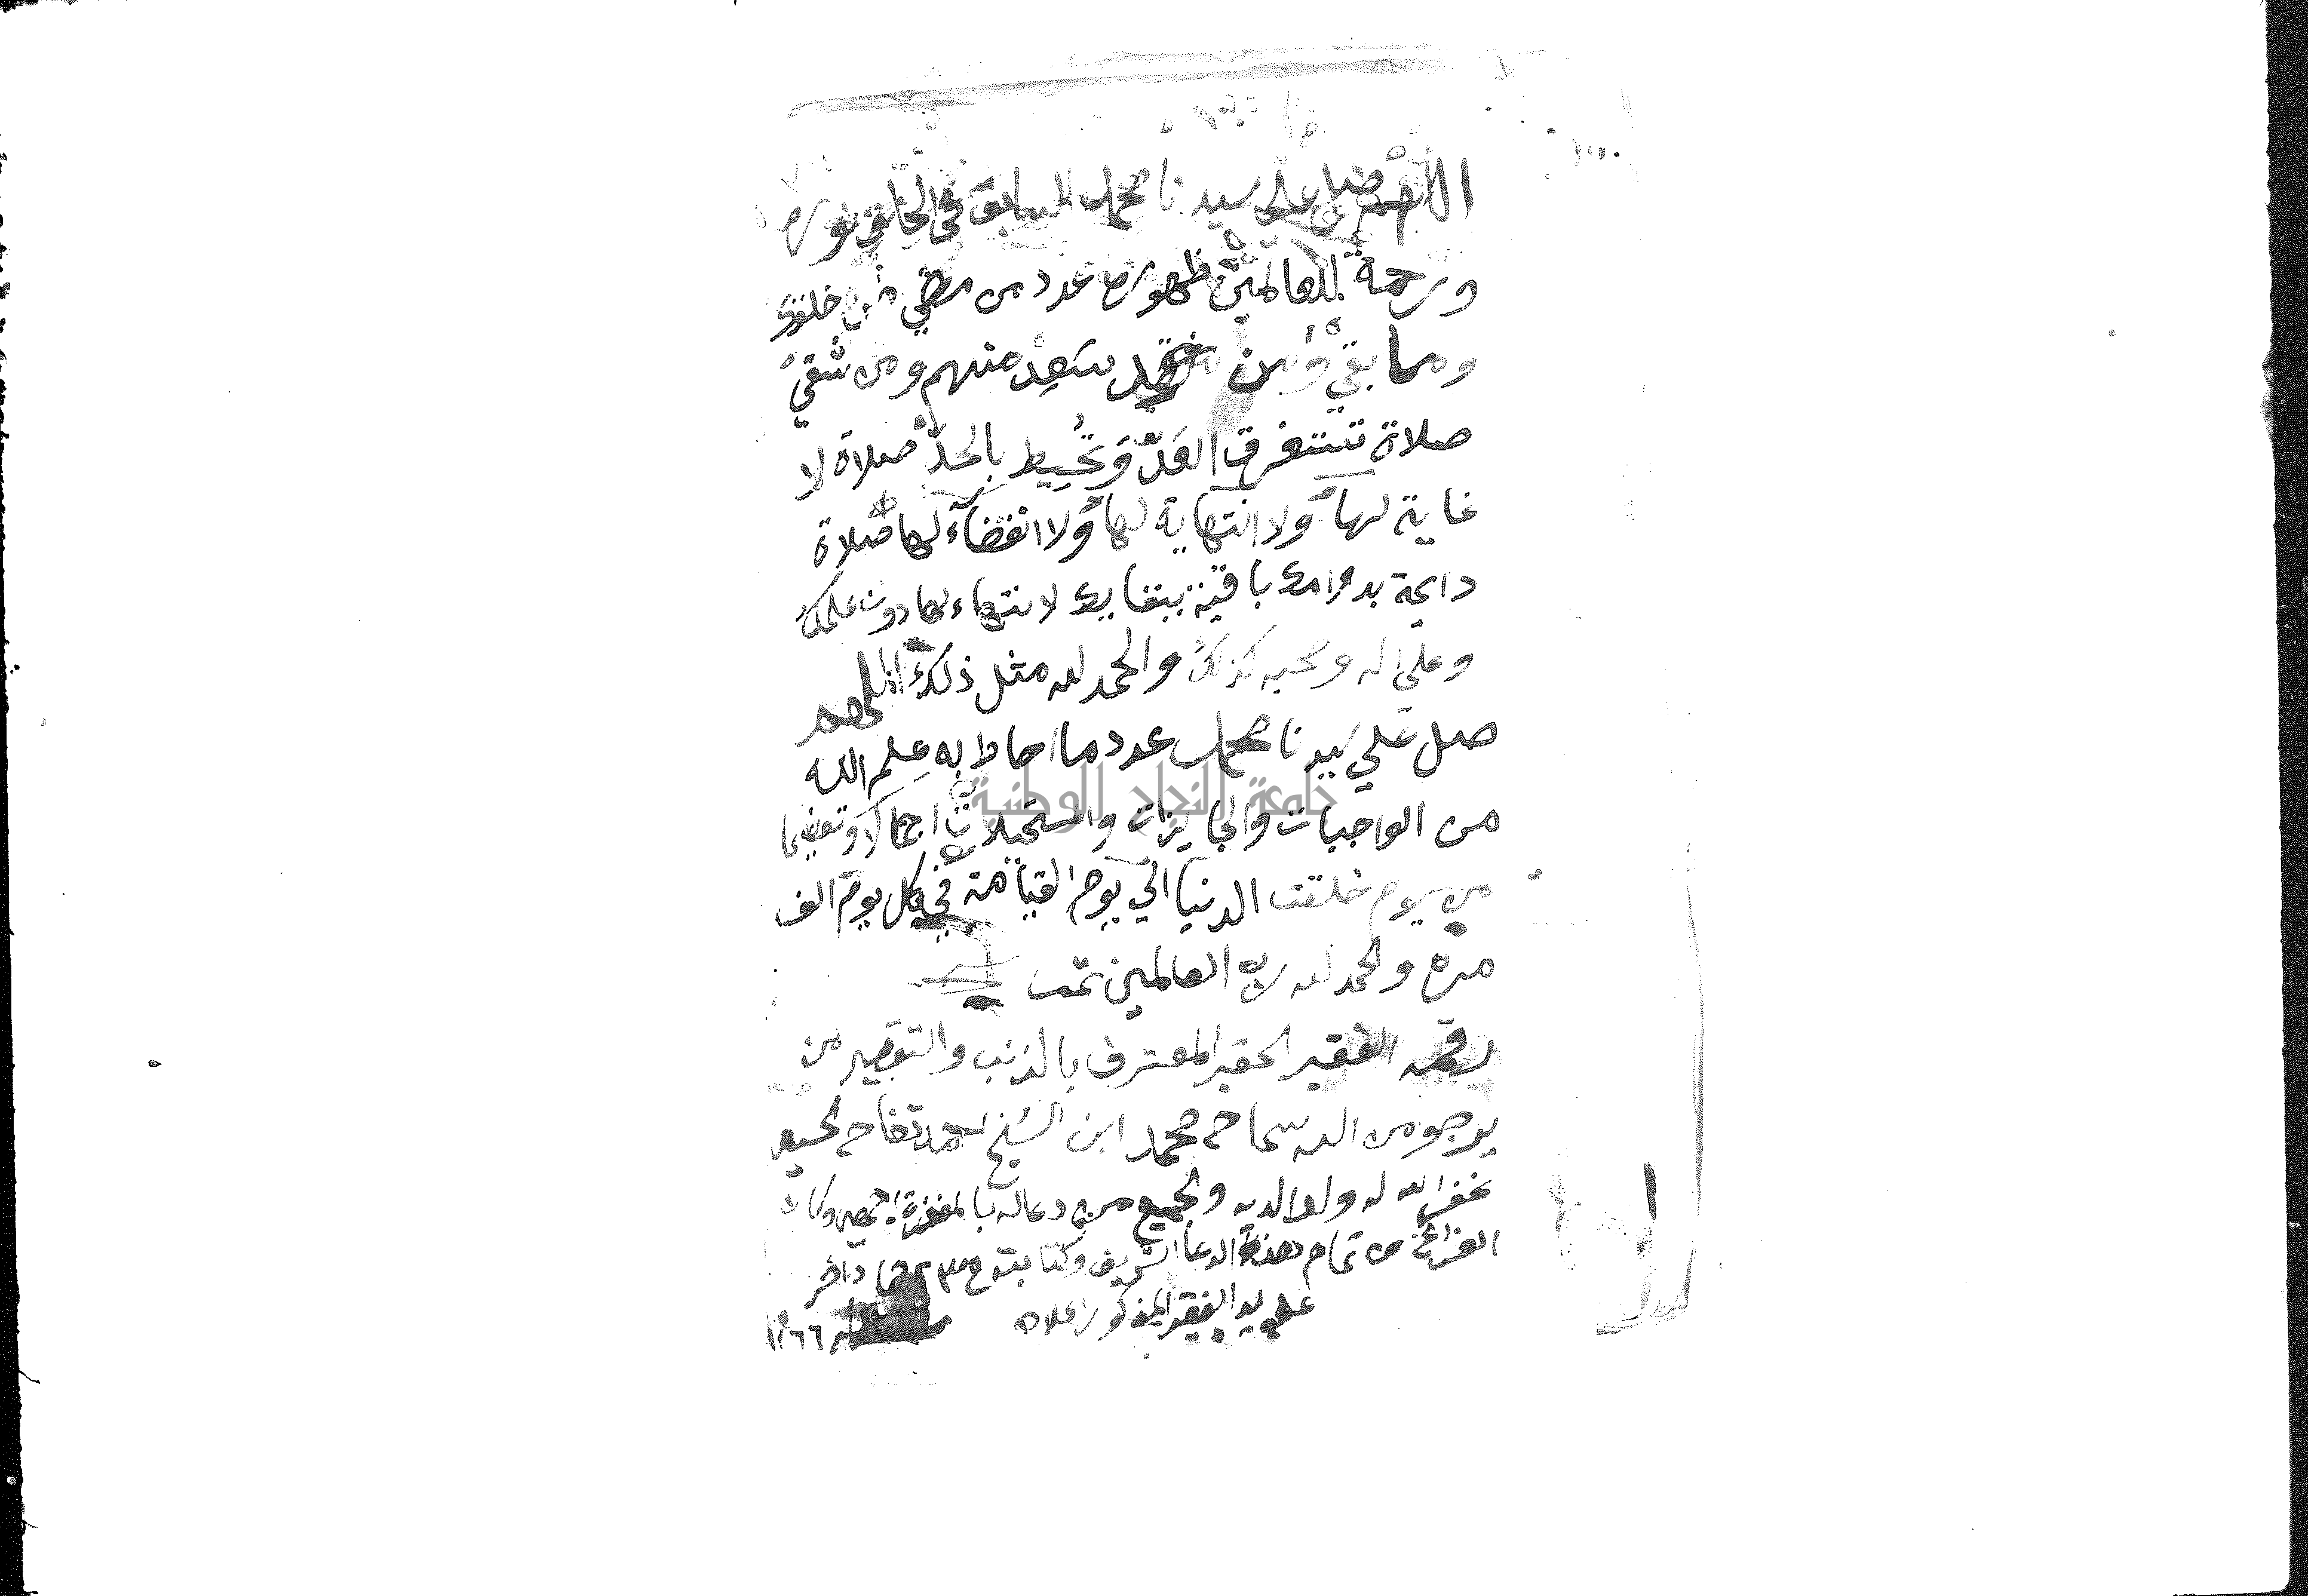 اللهم صل علي سيدنا محمد السابق في الخلق نوره
ورحمة للعالمين ظهوره عدد من مضي من خلقك
وما بقي ومن سعد منهم ومن شقي
صلاة تستغرق العدّ وتحيط بالحدّ صلاة لا
غاية لها ولا انتهاية لها ولا انقضآء لها صلاة
دايمة بدوامك باقية ببقايك لا نتهاء لها دون علمك
وعلي اله وصحبه كذلك والحمد لله مثل ذلك اللهم
صل علي سيدنا محمد عدد ما احاط به علم الله
جامعة النجاح الوطنية
من الواجبات والجايزات والمستحيلات اجمالا وتفصيلا
من يوم خلقت الدنيا الي يوم القيامة في كل يوم الف
مره والحمد لله رب العالمين تمت
رقمه الفقير الحقير المعترف بالذنب والتقصير من
يرجو من الله سماح محمد ابن الشيخ احمد تفاحه
غفر الله له ولوالديه ولجميع من دعا له بالمغفرة وكان
الفراغ من تمام هذه الدعا الشريف وكتابته
علي يد الفقير المذكور اعلاه